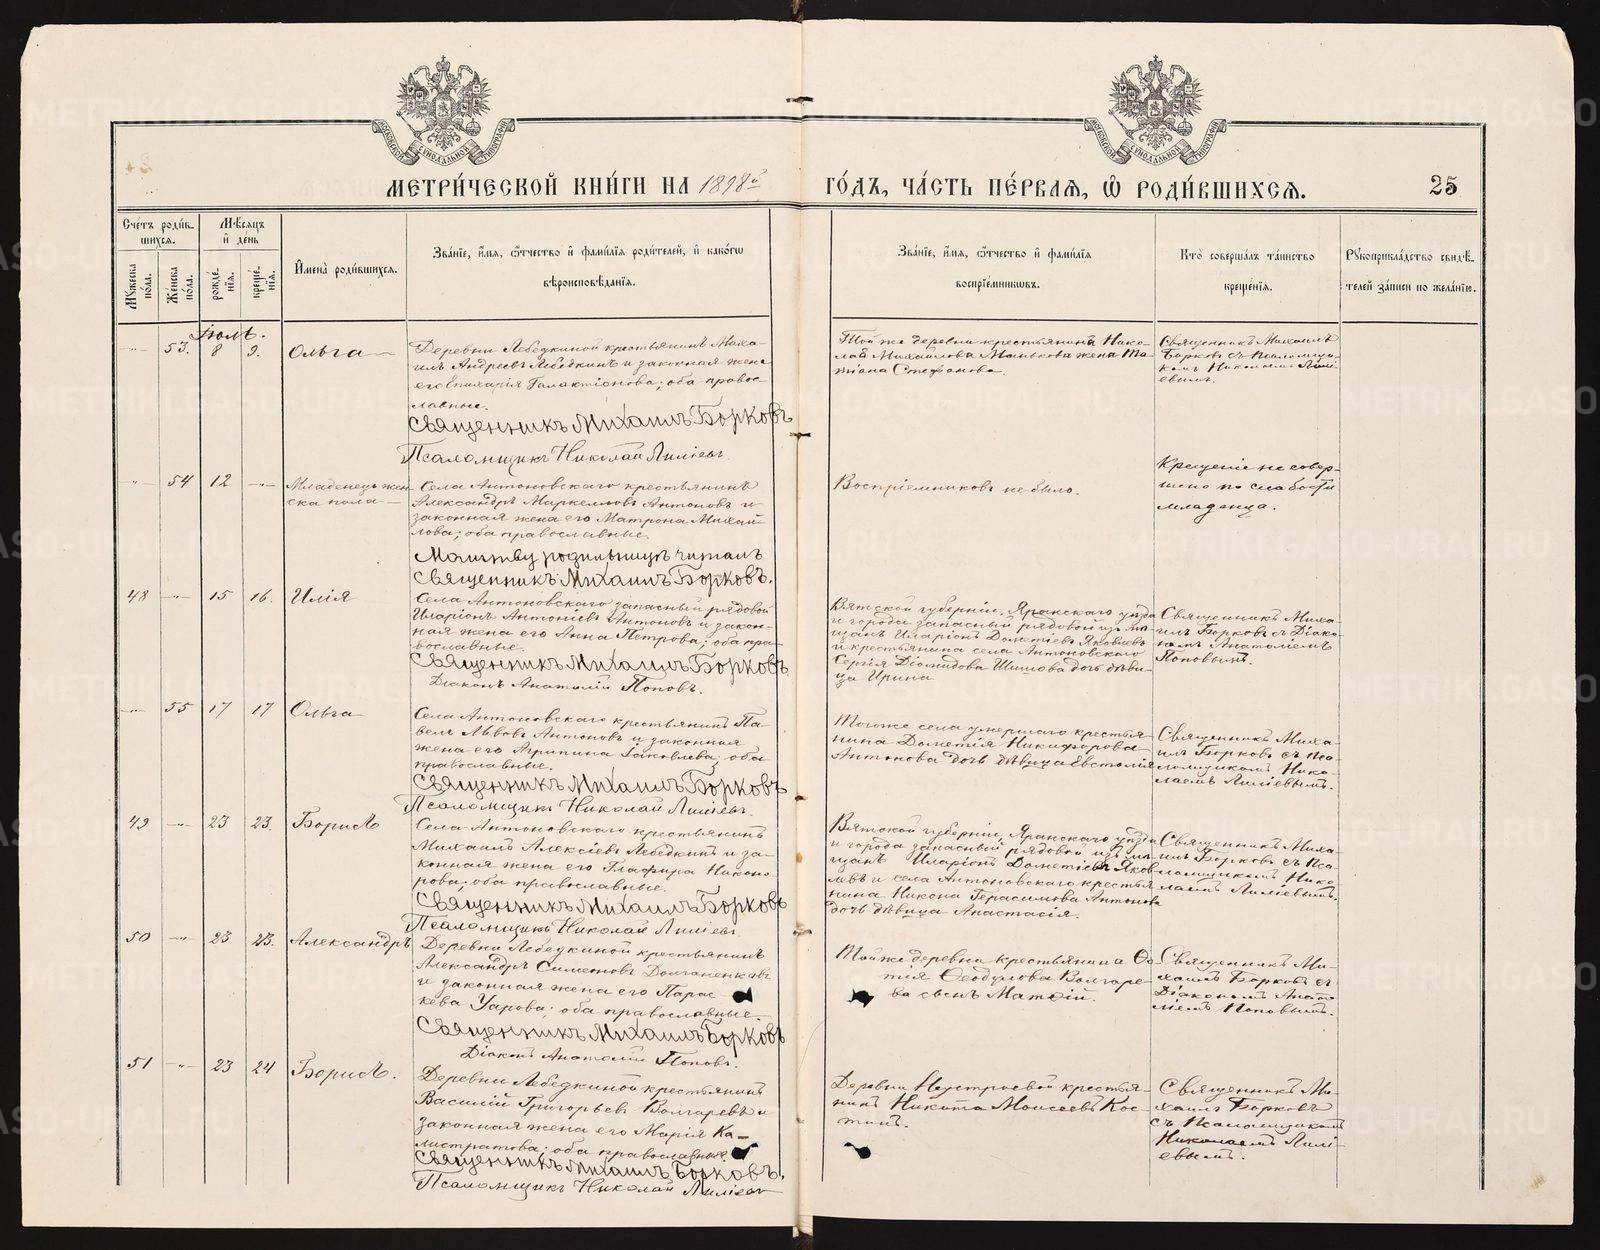 МЕТРИ́ЧЕСКОЙ КНИ́ГИ НА 1898й ГО́ДЪ, ЧА́СТЬ ПЕ́РВАѦ, Ѽ РОДИ́ВШИХСѦ. 25
Сче́тъ роди́в-
шихсѧ.
Мꙋ́жеска по́ла.
Же́нска по́ла.
Мѣ́сѧцъ и҆ де́нь
рожде́-
нїѧ.
креще́-
нїѧ.
И҆мена̀ роди́вшихсѧ.
Зва́нїе, и҆́мѧ, ѻ҆́тчество и҆ фами́лїѧ роди́телей, и҆ како́гѡ
вѣроисповѣ́данїѧ.
Зва́нїе, и҆́мѧ, ѻ҆́тчество и҆ фами́лїѧ
воспрїе́мникѡвъ.
Кто̀ соверша́лъ та́инство
креще́нїѧ.
Рꙋкоприкла́дство свидѣ́-
телей за́писи по жела́нїю.
Іюль.
53. 8 9. Ольга
Деревни Лебедкиной крестьянинъ Миха-
илъ Андреевъ Лебедкинъ и законная жена
его Галактіонова; оба право-
славные.
Священникъ Михаилъ Борковъ
Псаломщикъ Николай Лиліевъ
Той же деревни крестьянина Нико-
лая Михайлова Малькова жена Та-
тіана Стефанова.
Священникъ Михаилъ
Борковъ съ Псаломщи-
комъ Николаемъ Лилі-
евымъ.
54 12
Младенецъ жен-
ска пола
Села Антоновскаго крестьянинъ
Александръ Маркеловъ Антоновъ и
законная жена его Матрона Михай-
лова; оба православные.
Молитву родильницѣ читалъ
Священникъ Михаилъ Борковъ.
Воспріемниковъ не было.
Крещеніе не совер-
шено по слабости
младенца.
48 15 16. Илія
Села Антоновскаго запасный рядовой
Иларіонъ Антоновъ и закон-
ная жена его Анна Петрова; оба пра-
вославные.
Священникъ Михаилъ Борковъ
Діаконъ Анатолій Поповъ.
Вятской губерніи, Яранскаго уѣзда
и города запасный рядовой изъ мѣ-
щанъ Иларіонъ Дометіевъ Яковлевъ
и крестьянина села Антоновскаго
Сергія Діомидова Шишова дочь дѣви-
ца Ирина
Священникъ Миха-
илъ Борковъ съ Діако-
номъ Анатоліемъ
Поповымъ.
55 17 17 Ольга
Села Антоновскаго крестьянинъ Па-
велъ Львовъ Антоновъ и законная
жена его Агрипина Іаковлева; оба
православные.
Священникъ Михаилъ Борковъ
Псаломщикъ Николай Лиліевъ.
Тогоже села умершаго крестья-
нина Дометія Никифорова
Антонова дочь дѣвица Евстолія
Священникъ Миха-
илъ Борковъ съ Пса-
ломщикомъ Нико-
лаемъ Лиліевымъ.
49 23 23. Борисъ
Села Антоновскаго крестьянинъ
Михаилъ Алексіевъ Лебедкинъ и за-
конная жена его Глафира Никоно-
рова; оба православные.
Священникъ Михаилъ Борковъ
Псаломщикъ Николай Лиліевъ.
Вятской губерніи, Яранскаго уѣзда
и города запасный рядовой изъ мѣ-
щанъ Иларіонъ Дометіевъ Яков-
левъ и села Антоновскаго крестья-
нина Никона Герасимова Антонова
дочь дѣвица Анастасія.
Священникъ Миха-
илъ Борковъ съ Пса-
ломщикомъ Нико-
лаемъ Лиліевымъ.
50 23 23. Александръ
Деревни Лебедкиной крестьянинъ
Александръ Симеоновъ Долганенковъ
и законная жена его Парас-
кева Уарова; оба православные.
Священникъ Михаилъ Борковъ
Діаконъ Анатолій Поповъ.
Тойже деревни крестьянина Фо-
тія Ѳеодулова Волгаре-
ва сынъ Матѳій.
Священникъ Ми-
хаилъ Борковъ съ
Діакономъ Анато-
ліемъ Поповымъ.
51 23 24 Борисъ.
Деревни Лебедкиной крестьянинъ
Василій Григорьевъ Волгаревъ и
законная жена его Марія Ка-
листратова; оба православные.
Священникъ Михаилъ Борковъ.
Псаломщикъ Николай Лиліевъ
Деревни Неустроевой крестья-
нинъ Никита Моисеевъ Кос-
тинъ.
Священникъ Ми-
хаилъ Борковъ
съ Псаломщикомъ
Николаемъ Лилі-
евымъ.